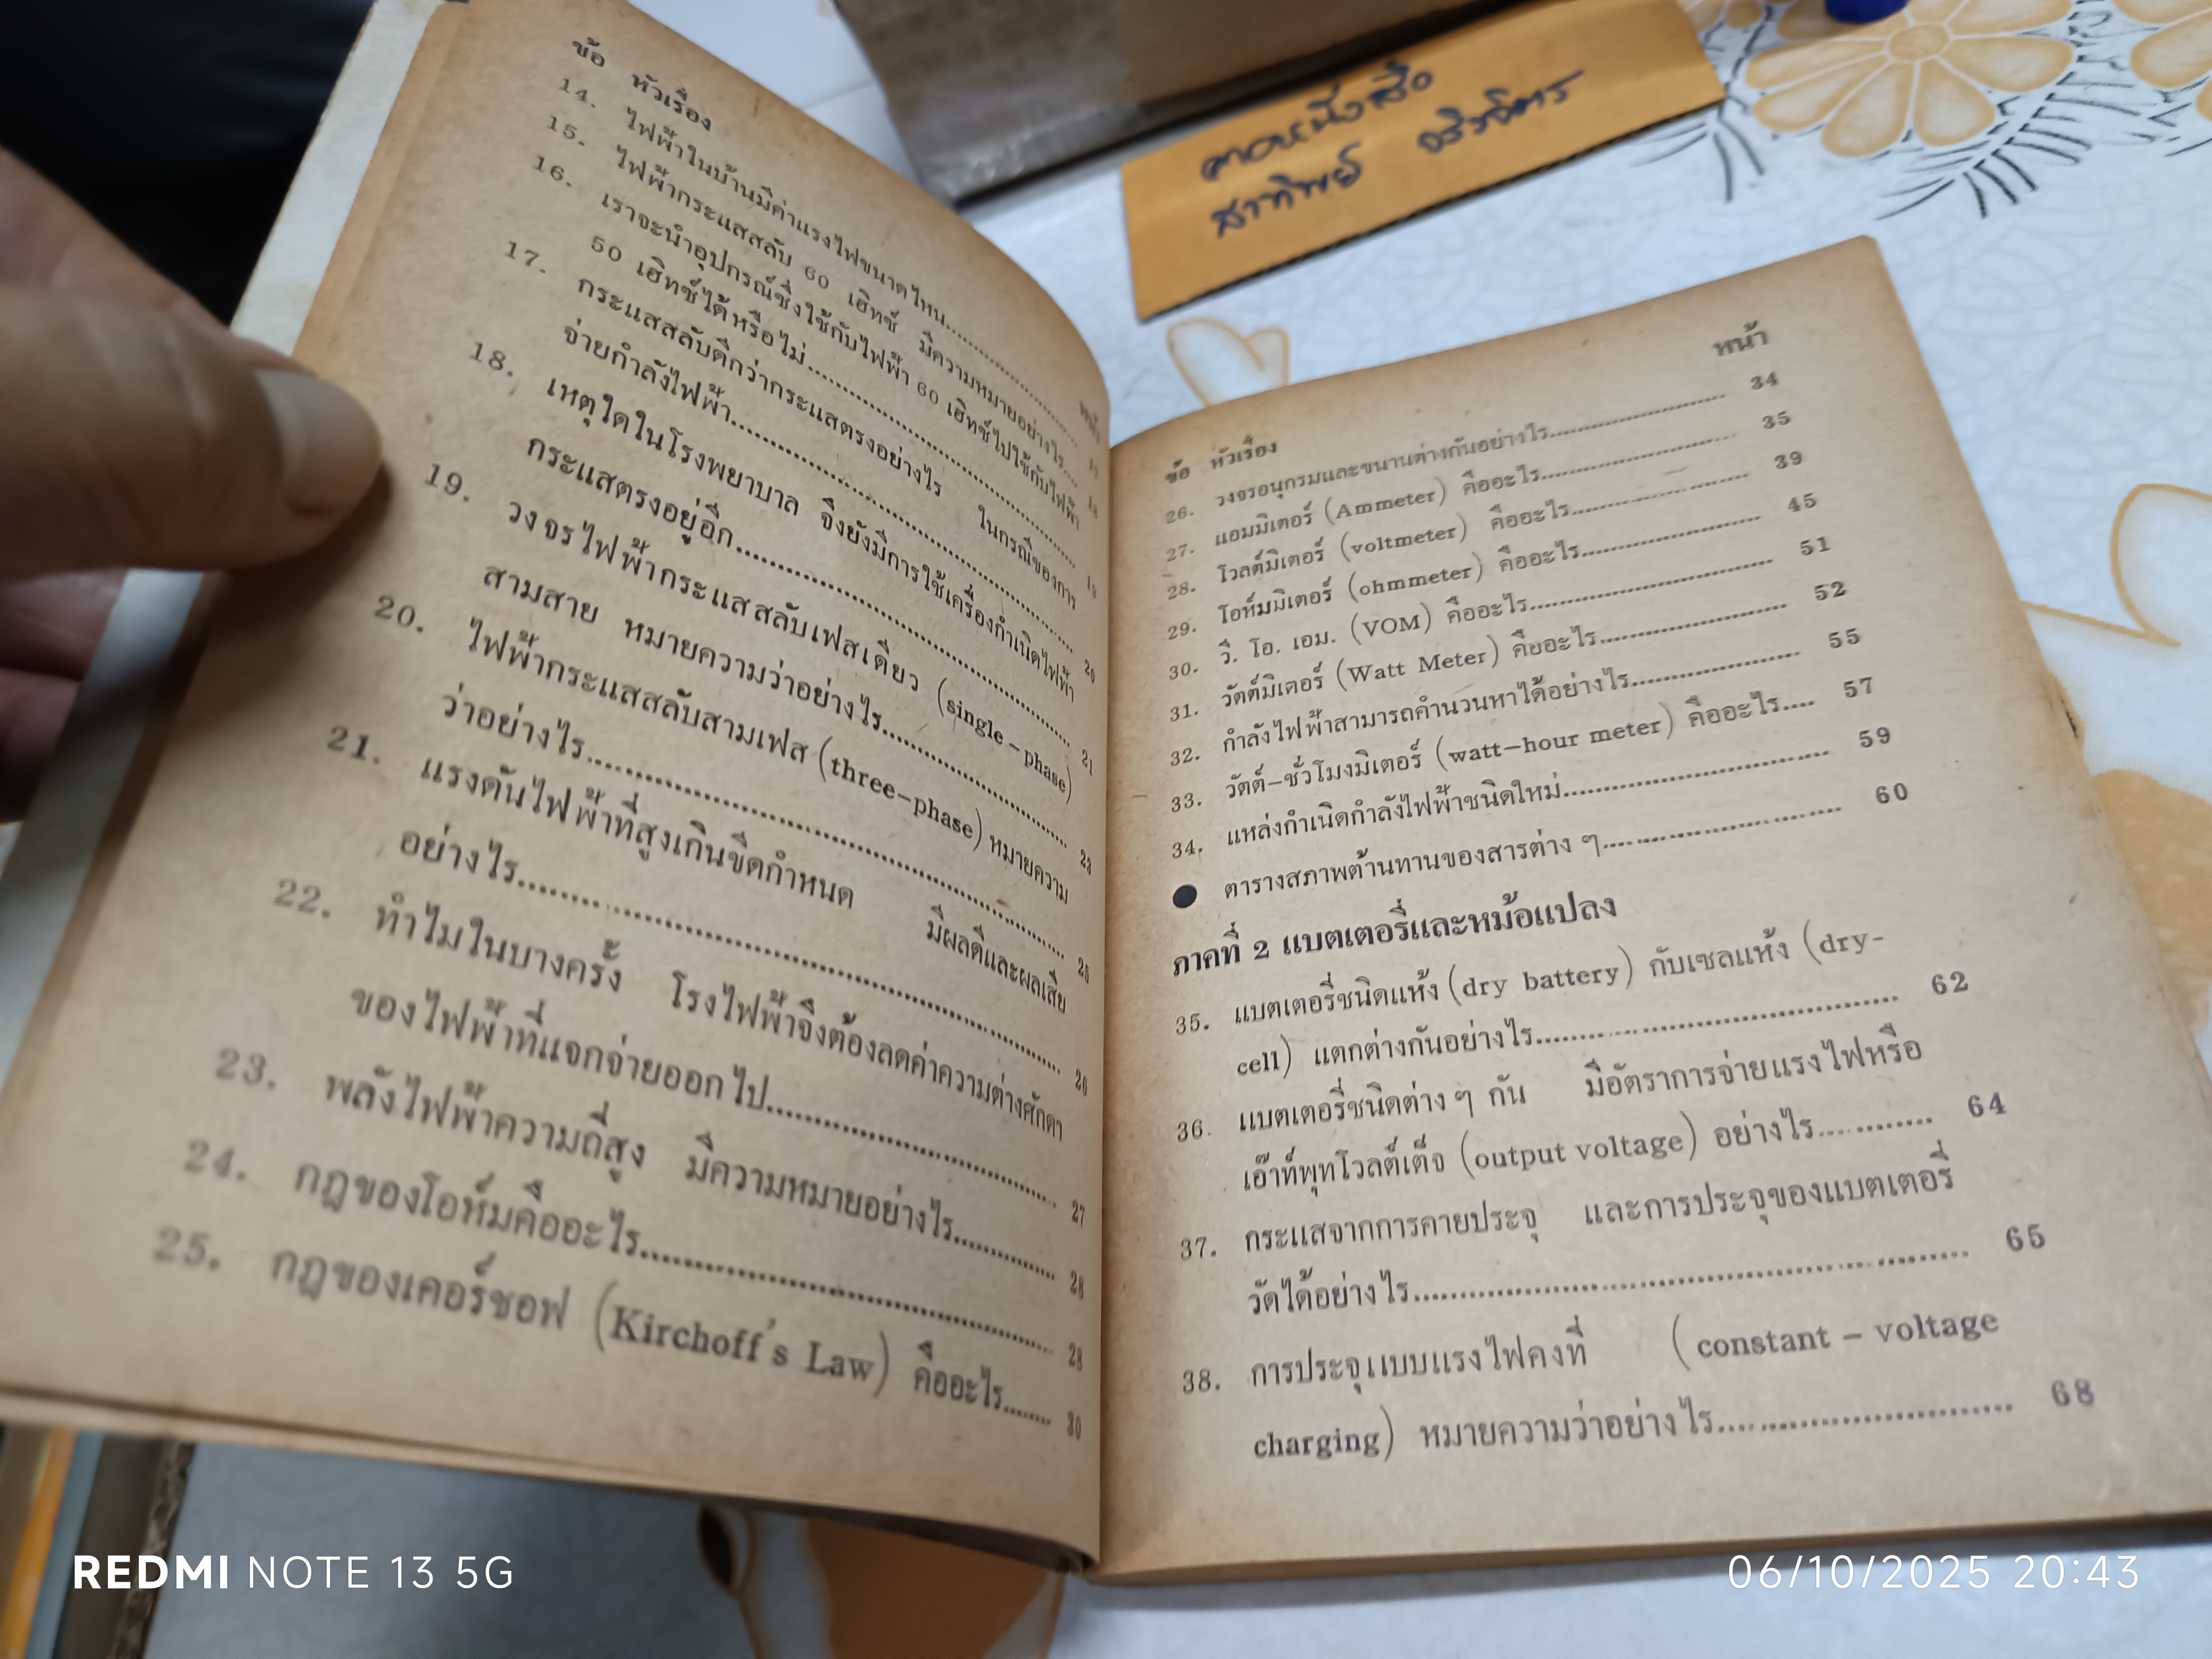 ข้อ หัวเรื่อง
หน้า
14. ไฟฟ้าในบ้านมีค่าแรงไฟขนาดไหน.................... 17
15. ไฟฟ้ากระแสสลับ 60 เฮิทซ์ มีความหมายอย่างไร.... 18
16. เราจะนำอุปกรณ์ซึ่งใช้กับไฟฟ้า 60 เฮิทซ์ไปใช้กับไฟฟ้า
50 เฮิทซ์ได้หรือไม่........................................ 19
17. กระแสสลับดีกว่ากระแสตรงอย่างไร ในกรณีของการ
จ่ายกำลังไฟฟ้า........................................ 20
18. เหตุใดในโรงพยาบาล จึงยังมีการใช้เครื่องกำเนิดไฟฟ้า
กระแสตรงอยู่อีก........................................ 21
19. วงจรไฟฟ้ากระแสสลับเฟสเดียว (single-phase)
สามสาย หมายความว่าอย่างไร........................
20. ไฟฟ้ากระแสสลับสามเฟส (three-phase) หมายความ
ว่าอย่างไร........................................ 25
21. แรงดันไฟฟ้าที่สูงเกินขีดกำหนด มีผลดีและผลเสีย
อย่างไร........................................ 26
22. ทำไมในบางครั้ง โรงไฟฟ้าจึงต้องลดค่าความต่างศักดา
ของไฟฟ้าที่แจกจ่ายออกไป........................ 27
23. พลังไฟฟ้าความถี่สูง มีความหมายอย่างไร............ 28
24. กฎของโอห์มคืออะไร................................ 28
25. กฎของเคอร์ชอฟ (Kirchoff's Law) คืออะไร........ 30
หน้า
ข้อ หัวเรื่อง
26. วงจรอนุกรมและขนานต่างกันอย่างไร.................... 34
27. แอมมิเตอร์ (Ammeter) คืออะไร.................... 35
28. โวลต์มิเตอร์ (voltmeter) คืออะไร.................... 39
29. โอห์มมิเตอร์ (ohmmeter) คืออะไร.................... 45
30. วี. โอ. เอม. (VOM) คืออะไร.................... 51
31. วัตต์มิเตอร์ (Watt Meter) คืออะไร.................... 52
32. กำลังไฟฟ้าสามารถคำนวนหาได้อย่างไร.................... 55
33. วัตต์-ชั่วโมงมิเตอร์ (watt-hour meter) คืออะไร.... 57
34. แหล่งกำเนิดกำลังไฟฟ้าชนิดใหม่.................... 59
● ตารางสภาพต้านทานของสารต่าง ๆ.................... 60
ภาคที่ 2 แบตเตอรี่และหม้อแปลง
35. แบตเตอรี่ชนิดแห้ง (dry battery) กับเซลแห้ง (dry-
cell) แตกต่างกันอย่างไร.................... 62
36. แบตเตอรี่ชนิดต่าง ๆ กัน มีอัตราการจ่ายแรงไฟหรือ
เอ๊าท์พุทโวลต์เต็จ (output voltage) อย่างไร............ 64
37. กระแสจากการคายประจุ และการประจุของแบตเตอรี่
วัดได้อย่างไร........................................ 65
38. การประจุแบบแรงไฟคงที่ (constant - voltage
charging) หมายความว่าอย่างไร........................ 68
REDMI NOTE 13 5G
06/10/2025 20:43